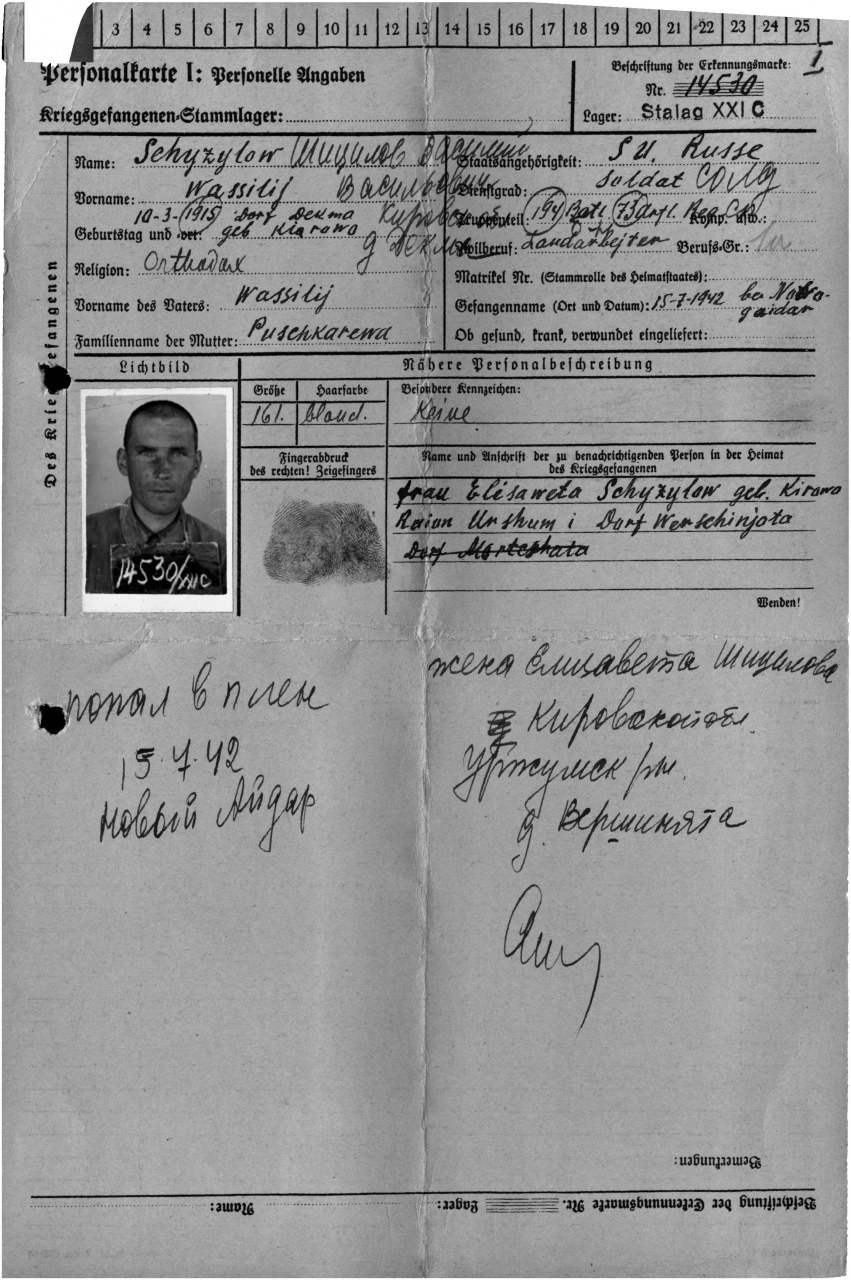 3 4 5 6 7 8 9 10 11 12 13 14 15 16 17 18 19 20 21 22 23 24 25
Personalkarte I: Personelle Angaben
Beschriftung der Erkennungsmarke: 1
Nr. 14530
Kriegsgefangenen-Stammlager:
Lager: Stalag XXI C
Des Kriegsgefangenen
Name: Schyzylow Шицилов Василий
Vorname: Wassilij Васильевич
10-3-1915 Dorf Dekma
Geburtstag und -ort: geb Kirowo д Декма
Religion: Orthodox
Vorname des Vaters: Wassilij
Familienname der Mutter: Puschkarewa
Staatsangehörigkeit: S.U. Russe
Dienstgrad: Soldat
Truppenteil: 194 Batl. 73 Komp. usw.:
Zivilberuf: Landarbejter Berufs-Gr.:
Matrikel Nr. (Stammrolle des Heimatstaates):
Gefangenname (Ort und Datum): 15-7-1942 bei Nowo-
gaidar
Ob gesund, krank, verwundet eingeliefert:
Lichtbild
14530/XXIC
Nähere Personalbeschreibung
Größe Haarfarbe Besondere Kennzeichen:
161. bloud. Keine
Fingerabdruck
des rechten! Zeigefingers
Name und Anschrift der zu benachrichtigenden Person in der Heimat
des Kriegsgefangenen
frau Elisaweta Schyzylow geb. Kirowo
Raion Urshum i Dorf Werschinjata
Wenden!
попал в плен
15.7.42
Новый Айдар
жена Елизавета Шицилова
Кировской обл.
Уржумск р-н.
д. Вершинята
Bemerkungen:
Beschriftung der Erkennungsmarke Nr. Lager: Name: